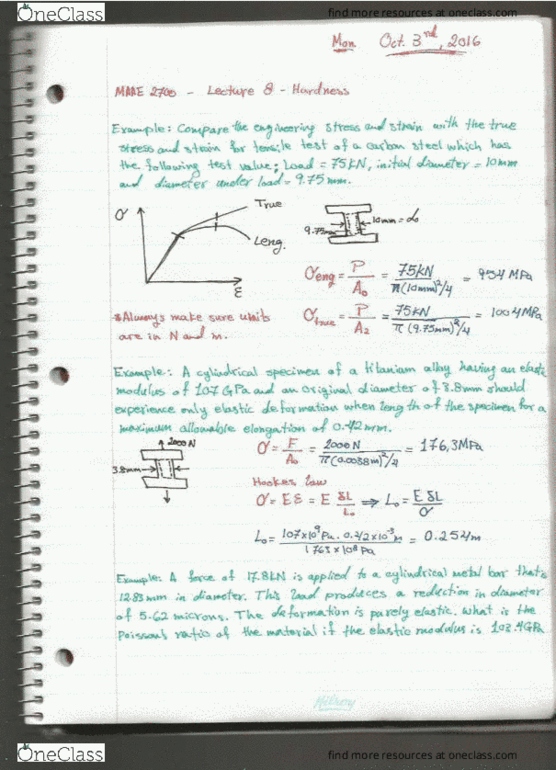 OneClass
find more resources at oneclass.com
Mon Oct. 3rd, 2016
MAAE 2700 - Lecture 8 - Hardness
Example: Compare the engineering stress and strain with the true
stress and strain for tensile test of a carbon steel which has
the following test value; Load = 75kN, initial diameter = 10mm
and diameter under load = 9.75mm.
σ
True
eng.
ε
9.75mm
10mm = d₀
σeng = P/A₀ = 75kN/π(10mm)²/4 = 954 MPa
σtrue = P/A₂ = 75kN/π(9.75mm)²/4 = 1004MPa
*Always make sure units
are in N and m.
Example: A cylindrical specimen of a titanium alloy having an elastic
modulus of 107 GPa and an original diameter of 3.8mm should
experience only elastic deformation when length of the specimen for a
maximum allowable elongation of 0.42mm.
2000N
3.8mm
σ = F/A₀ = 2000N/π(0.0038m)²/4 = 176,3MPa
Hookes law
σ = Eε = E δL/L₀ ⇒ L₀ = E δL/σ
L₀ = 107x10⁹Pa . 0.42x10⁻³m/1.763 x 10⁸Pa = 0.254m
Example: A force of 17.8kN is applied to a cylindrical metal bar that's
12.83 mm in diameter. This load produces a reduction in diameter
of 5.62 microns. The deformation is purely elastic. What is the
Poissons ratio of the material if the elastic modulus is 103.4GPa
Hilroy
OneClass
find more resources at oneclass.com